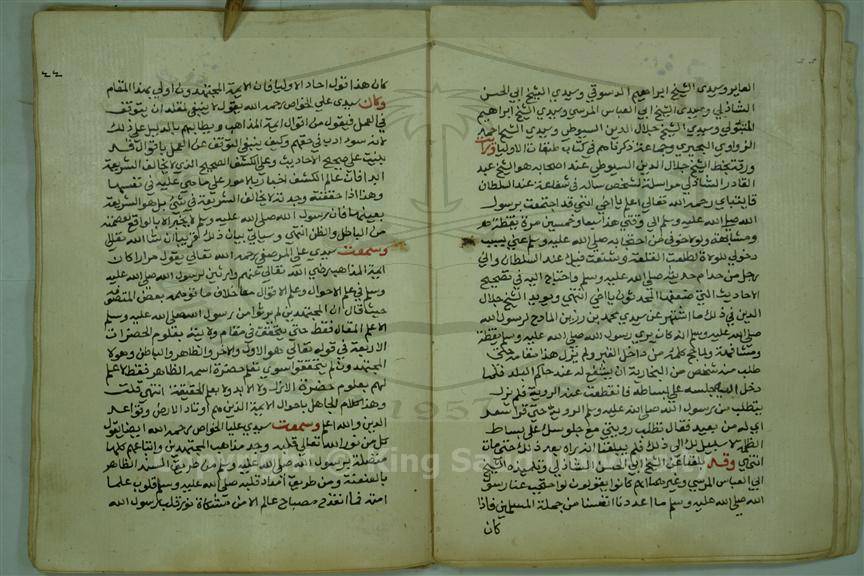 العابر وسيدي الشيخ ابراهيم الدسوقي وسيدي الشيخ ابي الحسن
الشاذلي وسيدي الشيخ ابي العباس المرسي وسيدي الشيخ ابراهيم
المتبولي وسيدي الشيخ جلال الدين السيوطي وسيدي الشيخ احمد
الزواوي البحيري وجماعة ذكرناهم في كتاب طبقات الاوليا ورايت
ورقة بخط الشيخ جلال الدين السيوطي عند احد اصحابه هو الشيخ عبد
القادر الشاذلي مراسلة لشخص ساله في شفاعة عند السلطان
قايتباي رحمه الله تعالى اعلم يا اخي انني قد اجتمعت برسول
الله صلى الله عليه وسلم الى وقتي هذا خمسا وسبعين مرة يقظة
ومشافهة ولولا خوفي من احتجابه صلى الله عليه وسلم عني بسبب
دخولي للولاة لطلعت القلعة وشفعت فيك عند السلطان واني
رجل من خدام حديثه صلى الله عليه وسلم واحتاج اليه في تصحيح
الاحاديث التي ضعفها المحدثون يا اخي انتهى ويويد الشيخ جلال
الدين في ذلك ما اشتهر عن سيدي محمد بن زين المادح لرسول الله
صلى الله عليه وسلم انه كان يرى رسول الله صلى الله عليه وسلم يقظة
ومشافهة ولما حج كلمه من داخل القبر ولم يزل هذا مقامه حتى
طلب منه شخص من النحارية ان يشفع له عند حاكم البلد فلما
دخل اليه اجلسه على بساطه فانقطعت عنه الروية فلم يزل
يتطلب من رسول الله صلى الله عليه وسلم الروية حتى
له من بعيد فقال تطلب رويتي مع جلوسك على بساط
الظلمة لا سبيل لك الى ذلك فلم يبلغنا انه راه بعد ذلك حتى مات
انتهى وقد بلغنا عن الشيخ ابي الحسن الشاذلي وتلميذه الشيخ
ابي العباس المرسي وغيرهما انهم كانوا يقولون لو احتجب عنا رسول
الله صلى الله عليه وسلم ما اعددنا انفسنا من جملة المسلمين فاذا
كان
كان هذا قول احاد الاوليا فان الايمة المجتهدون اولى بهذا المقام
وكان سيدي علي الخواص رحمه الله يقول لا ينبغي لمقلد ان يتوقف
في العمل بقول من اقوال ايمة المذاهب ويطالبهم بالدليل على ذلك
لانه سوء ادب في حقهم وكيف ينبغي التوقف عن العمل باقوال قد
بنيت على صحيح الاحاديث وعلى الكشف الصحيح الذي لا يخالف الشريعة
ابدا فان علم الكشف اخبار بالامور على ما هي عليه في نفسها
وهذا اذا حققته وجدته لا يخالف الشريعة في شي بل هو الشريعة
بعينها فان رسول الله صلى الله عليه وسلم لا يخبر الا بالواقع لعصمته
من الباطل والظن انتهى وسياتي بيان ذلك قريبا ان شا الله تعالى
وسمعت سيدي علي المرصفي رحمه الله تعالى يقول مرارا كان
ايمة المذاهب رضي الله تعالى عنهم وارثين لرسول الله صلى الله عليه
وسلم في علم الاحوال وعلم الاقوال معا خلاف ما توهمه بعض المتصوفة
حيث قال ان المجتهدين لم يرثوا من رسول الله صلى الله عليه وسلم
الا علم المقال فقط
الاربعة في قوله تعالى هو الاول والاخر والظاهر والباطن وهولا
المجتهدون لم يتحققوا سوى بعلم حضرة اسمه الظاهر فقط لا علم
لهم بعلوم حضرة الازل ولا الابد ولا بعلم الحقيقة انتهى قلت
وهذا كلام الجاهل باحوال الايمة الذين هم اوتاد الارض وقواعد
الدين والله اعلم وسمعت سيدي عليا الخواص رحمه الله ايضا يقول
كل من نور الله تعالى قلبه وجد مذاهب المجتهدين واتباعهم كلها
متصلة برسول الله صلى الله عليه وسلم من طريق السند الظاهر
بالعنعنة ومن طريق امداد قلبه صلى الله عليه وسلم لقلوب علما
امته فما انقدح مصباح عالم الا من مشكاة نور قلب رسول الله
Copyright © King Saud University
1957